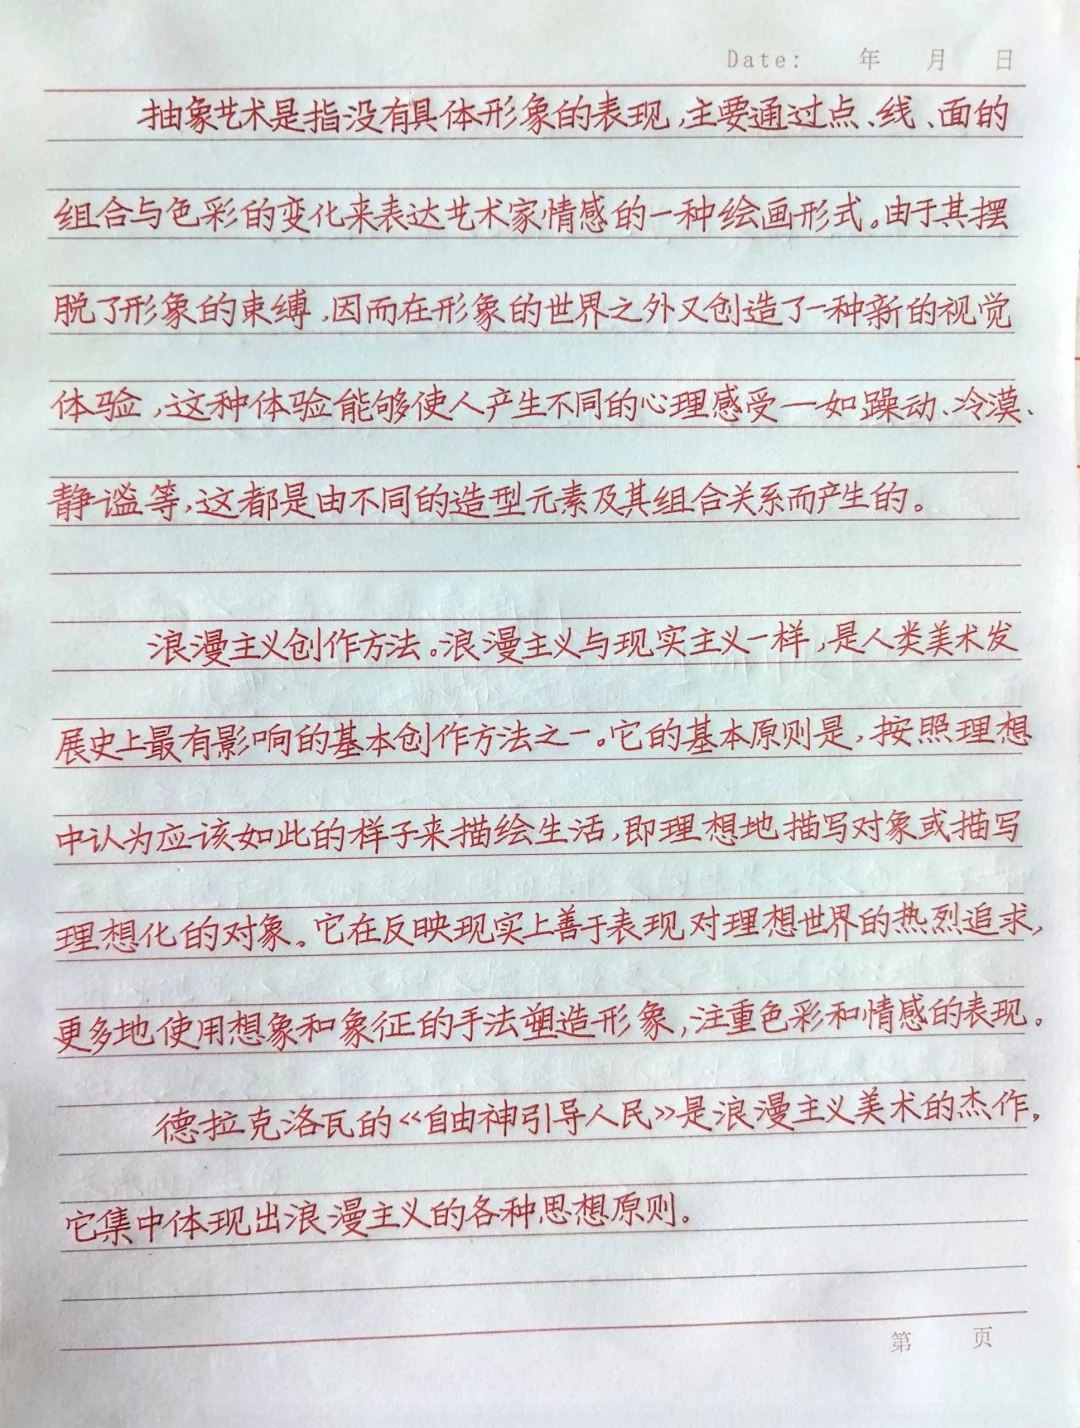 Date: 年 月 日
抽象艺术是指没有具体形象的表现,主要通过点、线、面的
组合与色彩的变化来表达艺术家情感的一种绘画形式。由于其摆
脱了形象的束缚,因而在形象的世界之外又创造了一种新的视觉
体验,这种体验能够使人产生不同的心理感受一如躁动、冷漠、
静谧等,这都是由不同的造型元素及其组合关系而产生的。
浪漫主义创作方法。浪漫主义与现实主义一样,是人类美术发
展史上最有影响的基本创作方法之一。它的基本原则是,按照理想
中认为应该如此的样子来描绘生活,即理想地描写对象或描写
理想化的对象。它在反映现实上善于表现对理想世界的热烈追求,
更多地使用想象和象征的手法塑造形象,注重色彩和情感的表现。
德拉克洛瓦的《自由神引导人民》是浪漫主义美术的杰作,
它集中体现出浪漫主义的各种思想原则。
第 页